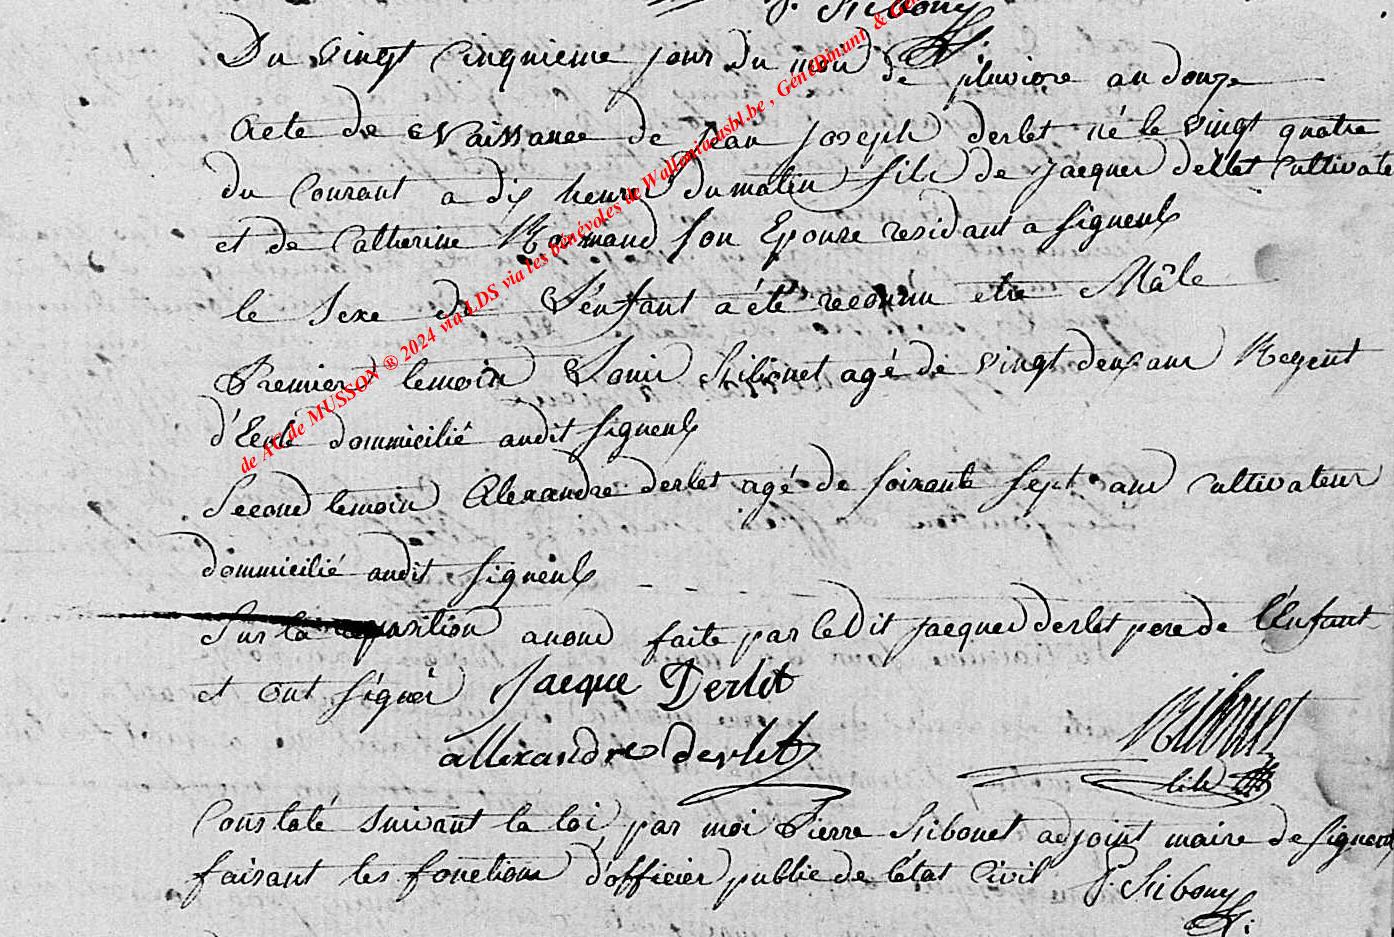 Du vingt cinquieme jour du mois de pluviose an douze
Acte de Naissance de Jean Joseph derlet né le vingt quatre
du Courant a dix heures du matin fils de Jacques derlet Cultivate
et de Catherine son Epouse residant a Signeulx
le Sexe de L'enfant a été reconnu etre Mâle
Premier temoin Louis Ribonet agé de vingt deux ans Regent
d'Ecole dommicilié audit Signeulx
Second temoin Alexandre derlet agé de soixante sept ans cultivateur
dommicilié audit Signeulx
Sur la requisition a nous faite par le Dit Jacques derlet pere de l'Enfant
et ont signés Jacque Derlet
allexandre derlet
Ribonet
fils
Constaté suivant la loi, par moi Pierre Ribonet adjoint maire de Signeulx
faisant les fonctions d'officier public de l'état Civil P. Ribonet
de AC de MUSSON ® 2024 via LDS via les bénévoles de Wallonia-asbl.be , GénéDinant &